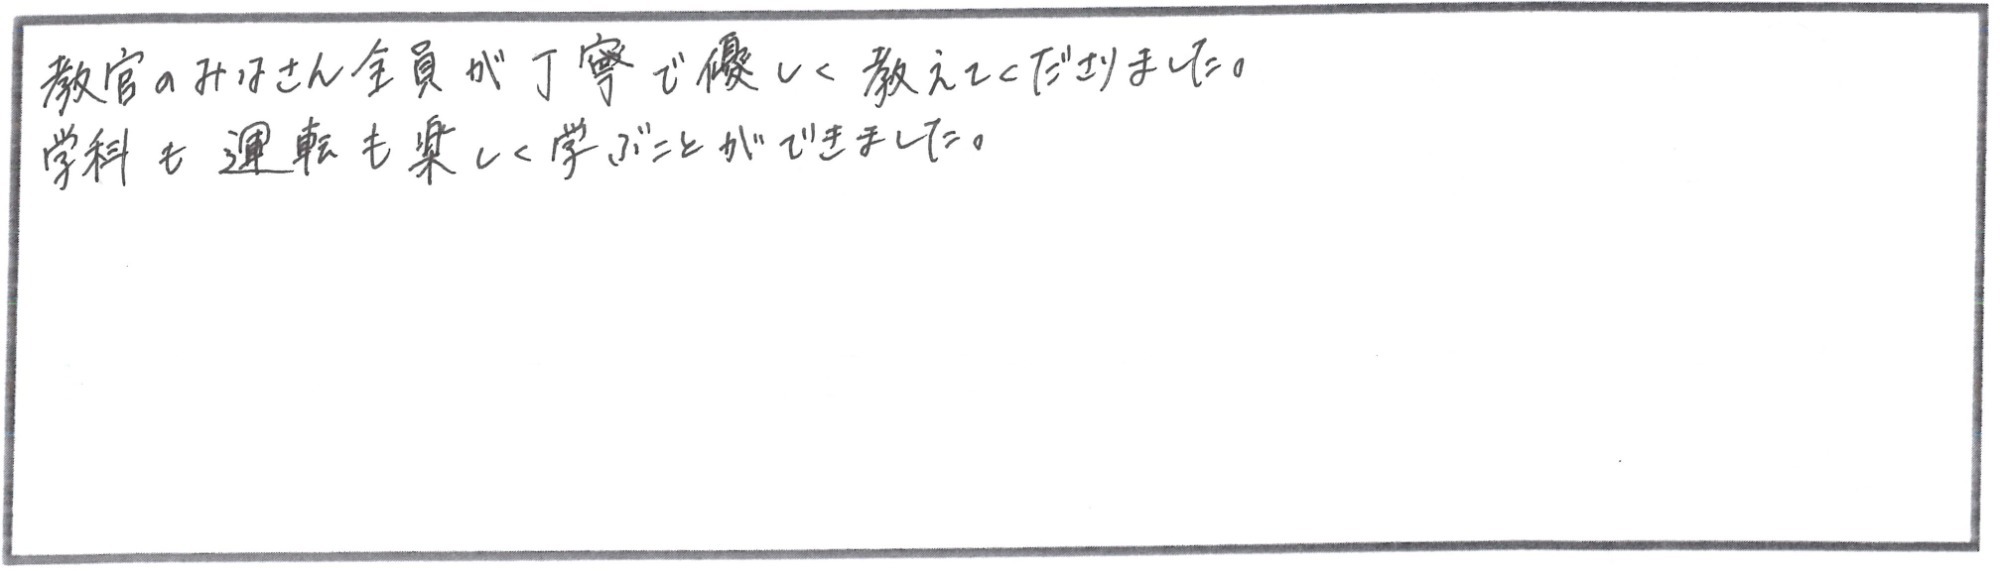 教官のみなさん全員が丁寧で優しく教えてくださりました。
学科も運転も楽しく学ぶことができました。